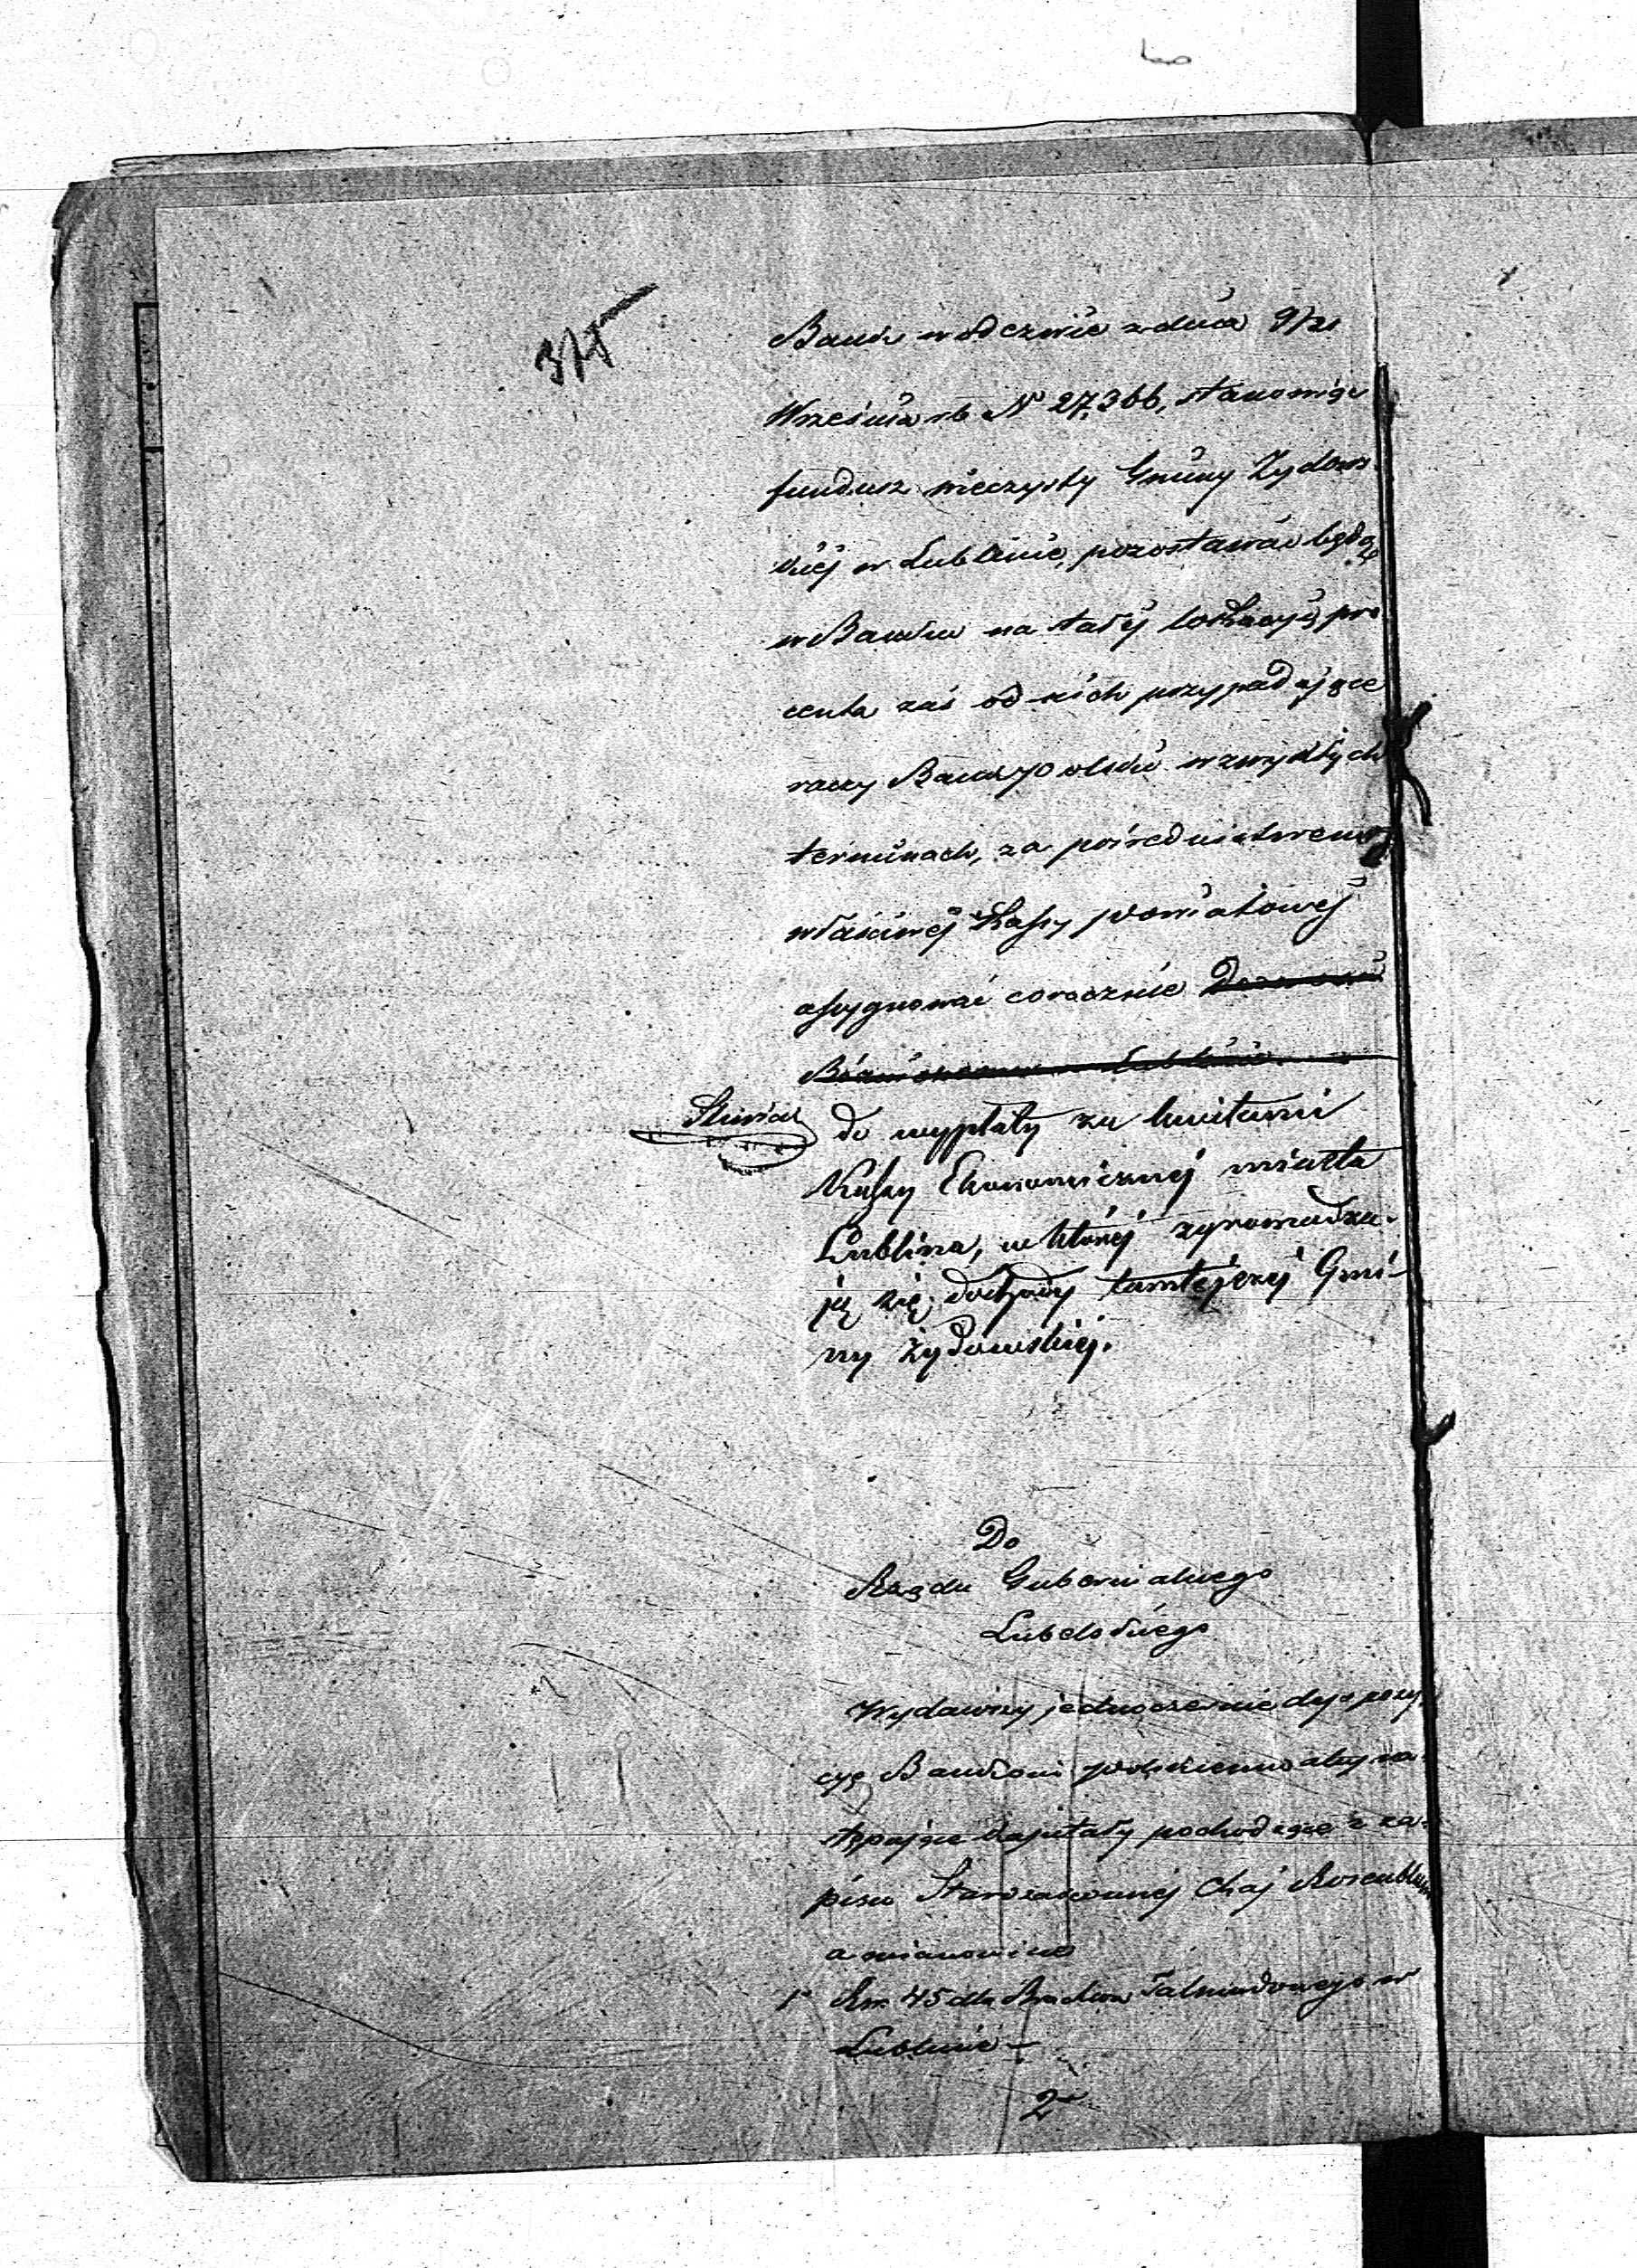 Bank w odezwie z dnia 9/21
Września rb N 27,366, stanowiąc
fundusz wieczysty Gminy Żydows-
kiéj w Lublinie, pozostawać będą
w Banku na stałéj lokacyi, pro
centa zaś od nich przypadające
raczy Bank polski w zwykłych
terminach, za pośrednictwem
właściwéj Kassy powiatowéj
assygnować corocznie
do wypłaty za kwitami
Kassy Ekonomicznej miasta
Lublina, w której zgromadza-
ją się dochody tamtejszej Gmi-
ny żydowskiej.
Do
Rządu Gubernialnego
Lubelskiego
Wydawszy jednocześnie dyspozy
cyą Bankowi polskiemu aby na-
stępujące kapitały pochodzące z za-
pisu Starozakonnéj Chaj Rosenblum
a mianowicie
1° Rsr. 45 dla Bractwa Talmudowego w
Lublinie –
2°